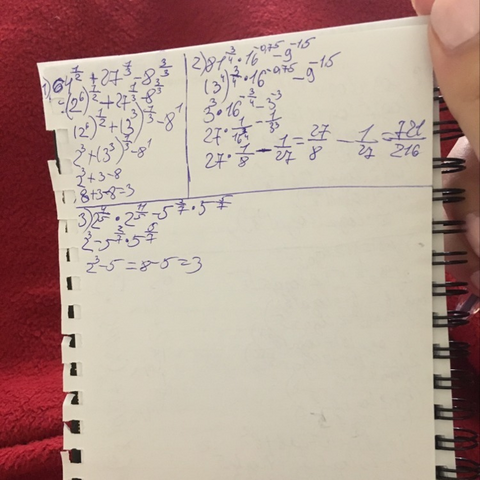 1) 64^{1/2} + 27^{1/3} - 8^{3/3}
(2^6)^{1/2} + 27^{1/3} - 8^{3/3}
(2^6)^{1/2} + (3^3)^{1/3} - 8^1
2^3 + (3^3)^{1/3} - 8^1
2^3 + 3 - 8
8 + 3 - 8 = 3
2) 81^{3/4} · 16^{-0,75} - 9^{-1,5}
(3^4)^{3/4} · 16^{-0,75} - 9^{-1,5}
3^3 · 16^{-3/4} - 3^{-3}
27 · 1/16^{3/4} - 1/3^3
27 · 1/8 - 1/27 = 27/8 - 1/27 = 721/216
2^3 - 5 = 8 - 5 = 3